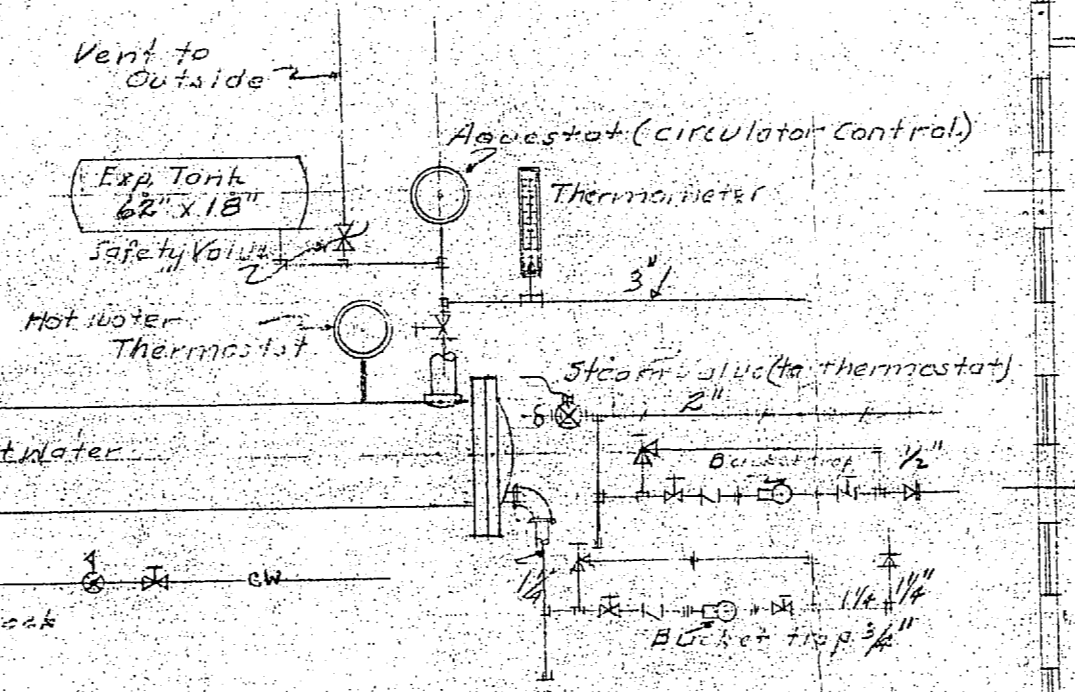 Vent to
Outside
Aquestat (circulator Control.)
Exp. Tank
62" x 18"
Thermometer
Safety Valve
3"
Hot water
Thermostat
Steam valve (to thermostat)
2"
t Water
Bucket trap
1/2"
1¼"
CW
1¼ 1¼"
Bucket trap 3/4"